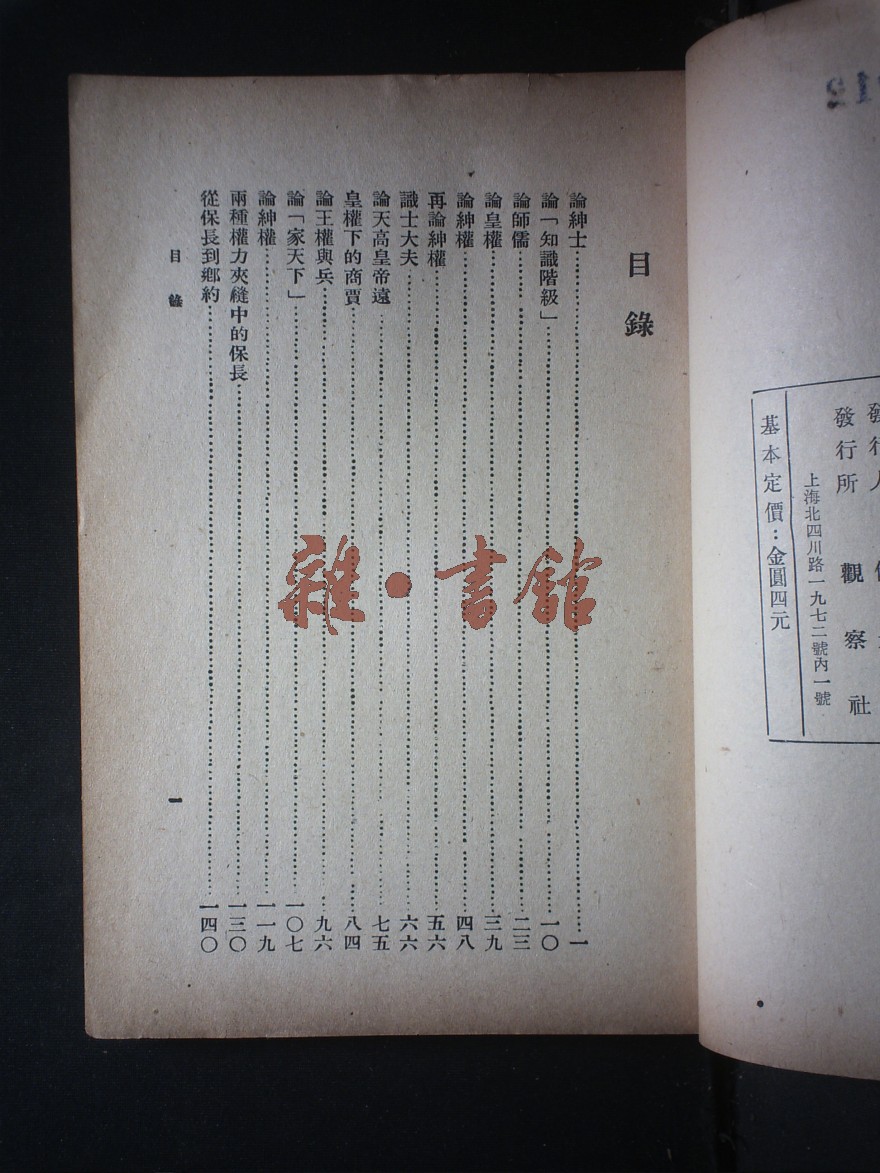 目錄
論紳士……一
論「知識階級」……一〇
論師儒……二三
論皇權……三九
論紳權……四八
再論紳權……五六
識士大夫……六六
論天高皇帝遠……七五
皇權下的商賈……八四
論王權與兵……九六
論「家天下」……一〇七
論紳權……一一九
兩種權力夾縫中的保長……一三〇
從保長到鄉約……一四〇
目錄 一
發行人
發行所 觀察社
上海北四川路一九七二號內一號
基本定價：金圓四元
雜·書館